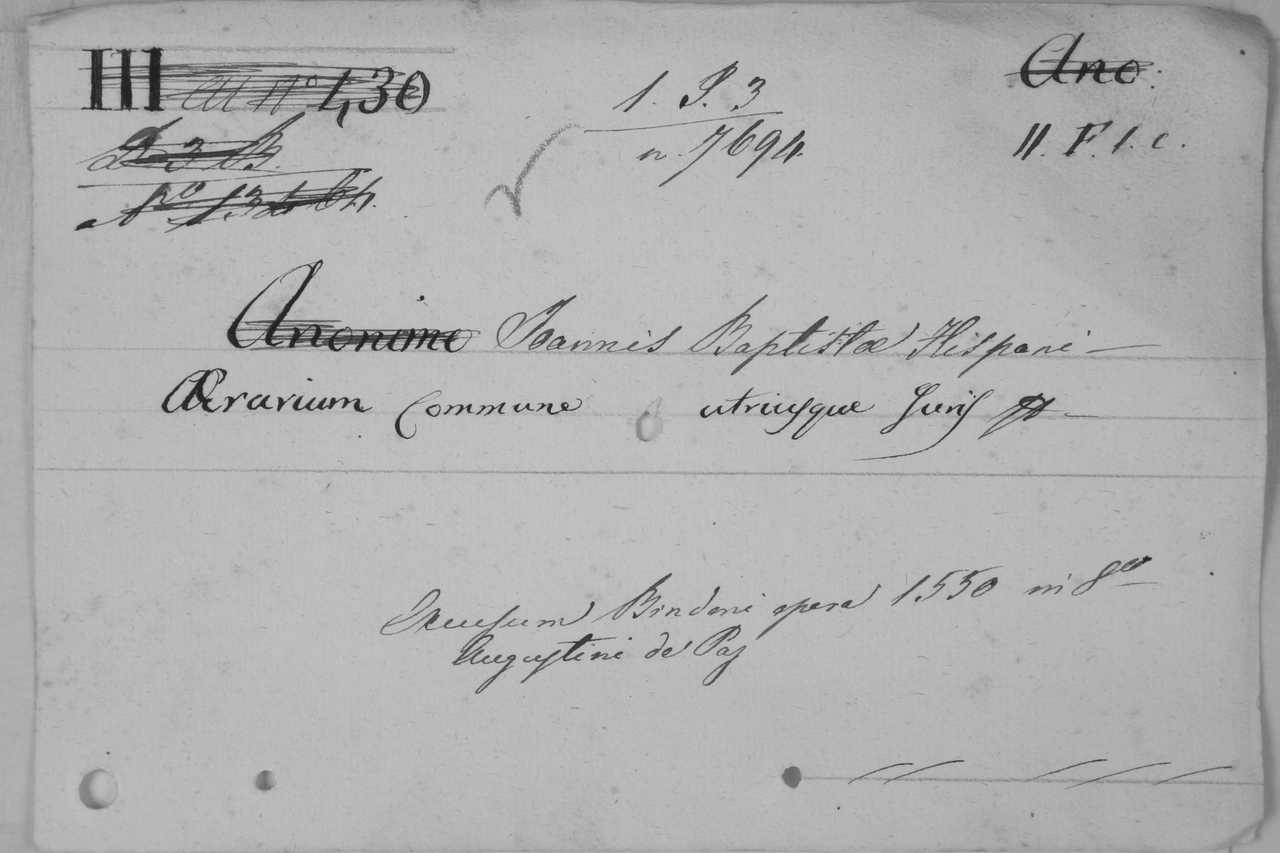 III au No 430
1. S. 3
n. 7694.
Ano.
II. F. 1. c.
Anonimo Joannis Baptistæ Hispani
Ærarium commune utriusque Juris
Excusum Bindoni opera 1550 in 8vo
Augustini de Paz